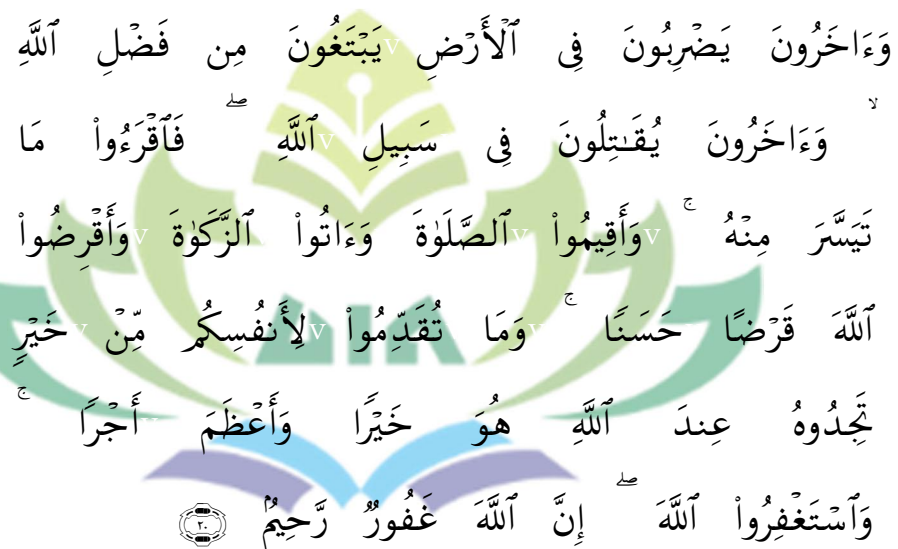 وَءَاخَرُونَ يَضۡرِبُونَ فِي ٱلۡأَرۡضِ يَبۡتَغُونَ مِن فَضۡلِ ٱللَّهِ
ۙ وَءَاخَرُونَ يُقَٰتِلُونَ فِي سَبِيلِ ٱللَّهِ ۖ فَٱقۡرَءُواْ مَا
تَيَسَّرَ مِنۡهُ ۚ وَأَقِيمُواْ ٱلصَّلَوٰةَ وَءَاتُواْ ٱلزَّكَوٰةَ وَأَقۡرِضُواْ
ٱللَّهَ قَرۡضًا حَسَنٗا ۚ وَمَا تُقَدِّمُواْ لِأَنفُسِكُم مِّنۡ خَيۡرٖ
تَجِدُوهُ عِندَ ٱللَّهِ هُوَ خَيۡرٗا وَأَعۡظَمَ أَجۡرٗا ۚ
وَٱسۡتَغۡفِرُواْ ٱللَّهَ ۖ إِنَّ ٱللَّهَ غَفُورٞ رَّحِيمُۢ ۝٢٠